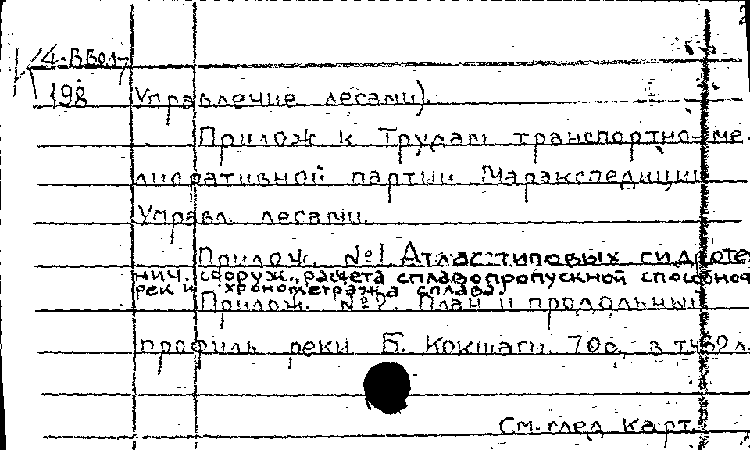 198
Управление лесами).
Прилож к Трудам транспортно-ме-
лиоративной партии Марэкспедиции
Управл. лесами.
Прилож. №1. Атлас типовых гидроте
нич. сооруж., расчета сплавопропускной способнос
рек и хронометража сплава.
Прилож. №2. План и продольный
профиль реки Б. Кокшаги. 70с,
См. след. карт.